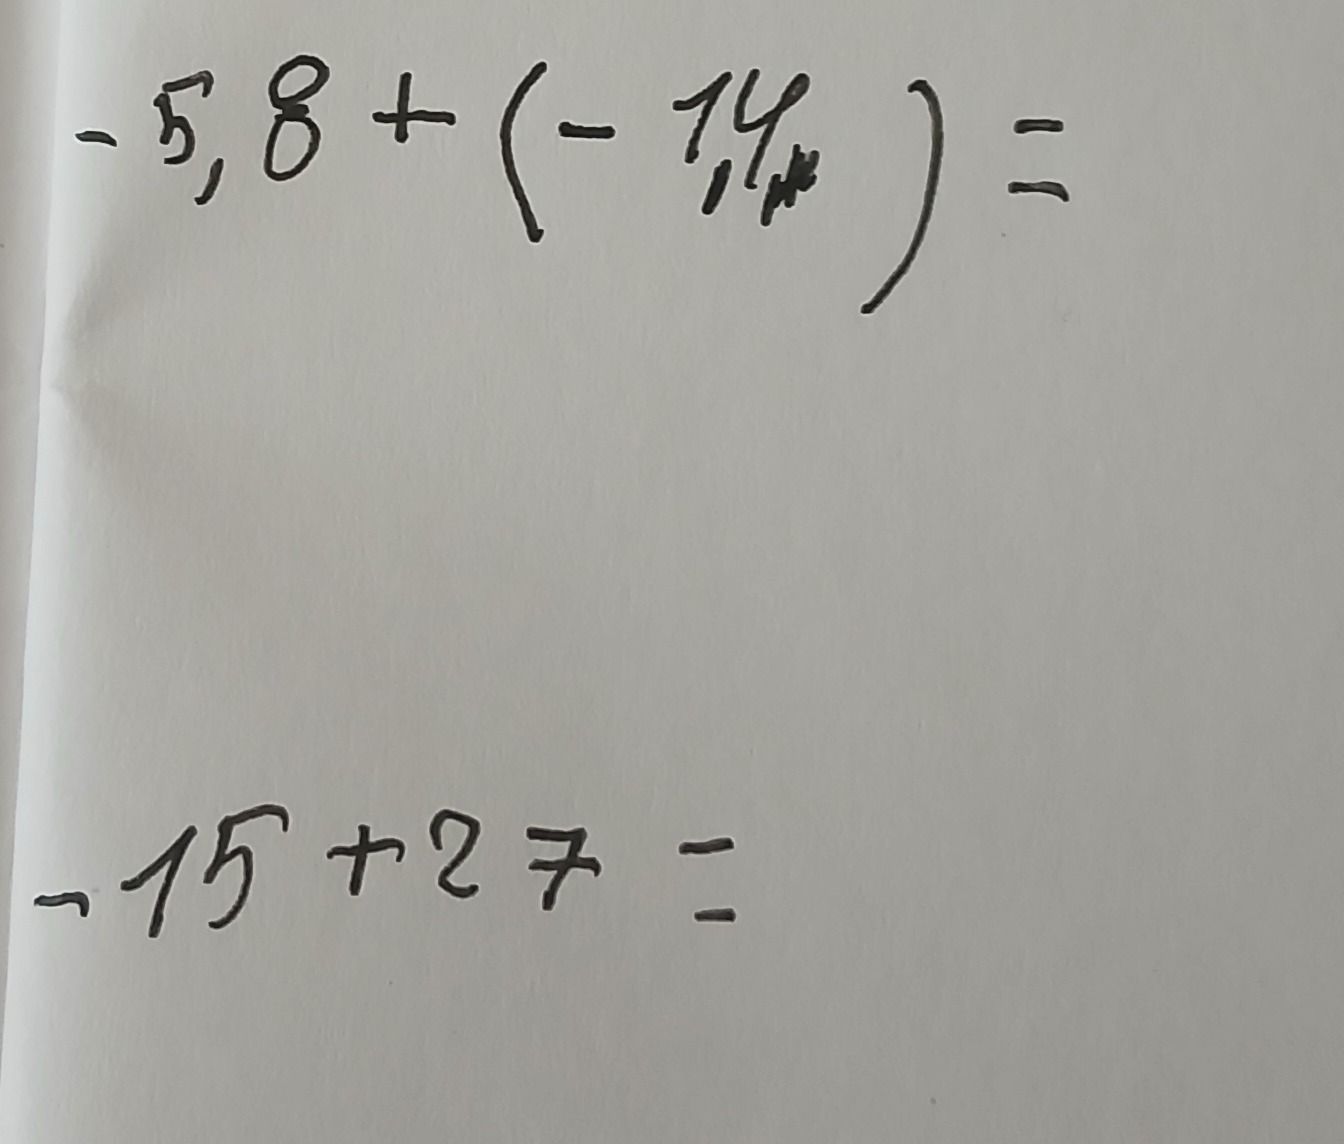 -5,8+(-1,4)=
-15+27=